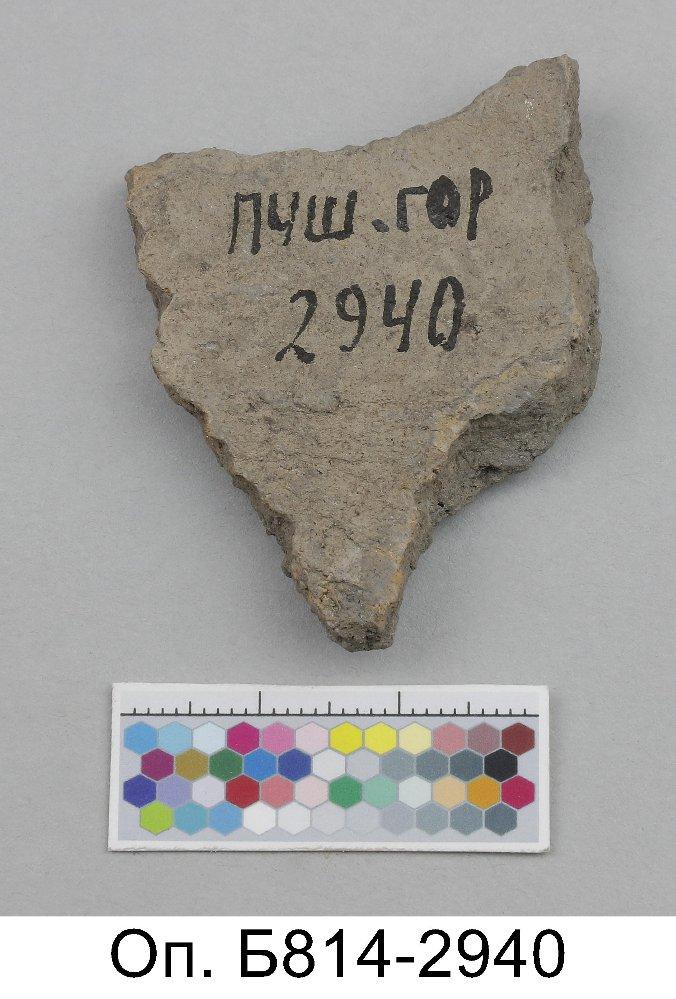 ПУШ.ГОР
2940
Оп. Б814-2940